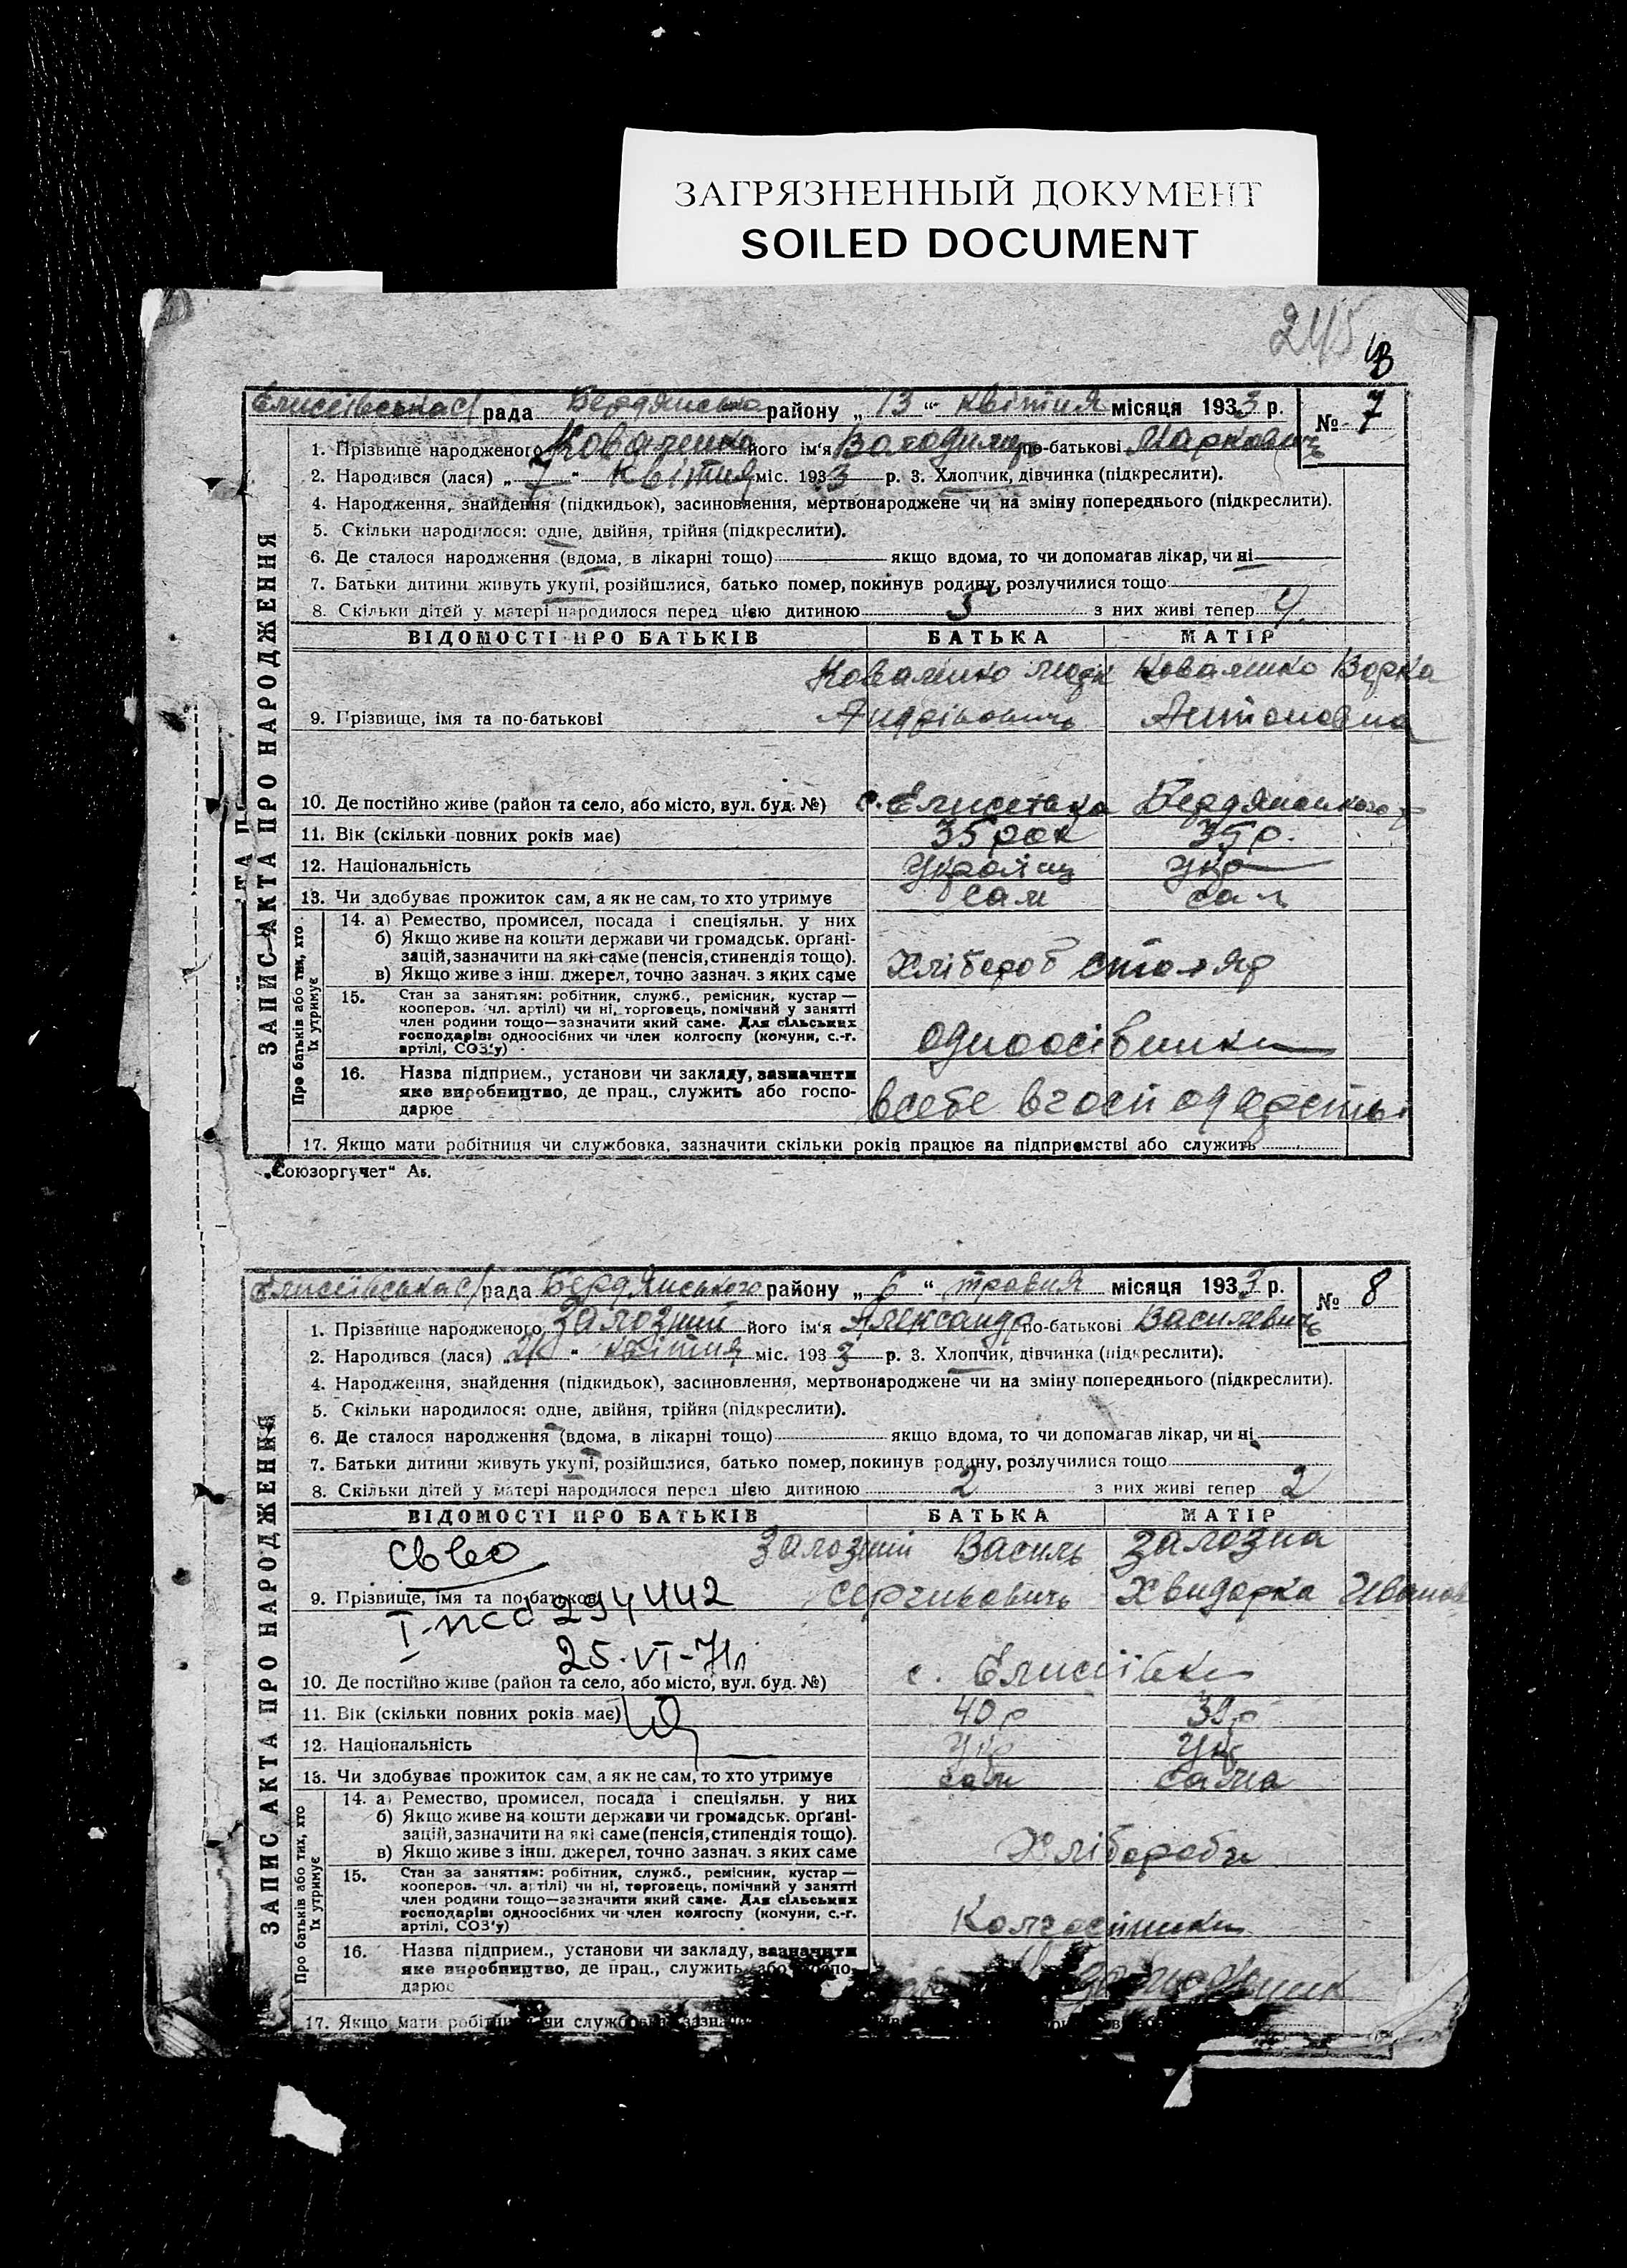 ЗАГРЯЗНЕННЫЙ ДОКУМЕНТ
SOILED DOCUMENT
7
рада Бердянсько району „ 13 “ квітня місяця 1933 р.
№ 7
1. Прізвище народженого Коваленко його ім'я Володимир по-батькові Маркович
2. Народився (лася) „ 7 “ квітня міс. 1933 р. 3. Хлопчик, дівчинка (підкреслити).
4. Народження, знайдення (підкидьок), засиновлення, мертвонароджене чи на зміну попереднього (підкреслити).
5. Скільки народилося: одне, двійня, трійня (підкреслити).
6. Де сталося народження (вдома, в лікарні тощо) якщо вдома, то чи допомагав лікар, чи ні
7. Батьки дитини живуть укупі, розійшлися, батько помер, покинув родину, розлучилися тощо
8. Скільки дітей у матері народилося перед цією дитиною 5 з них живі тепер 4
ЗАПИС АКТА ПРО НАРОДЖЕННЯ
ВІДОМОСТІ ПРО БАТЬКІВ БАТЬКА МАТІР
Коваленко Марк Коваленко Варка
9. Прізвище, імя та по-батькові Андріювичь Антоновна
10. Де постійно живе (район та село, або місто, вул. буд. №) с. Бердянського р
11. Вік (скільки повних років має) 35 рок 35 р.
12. Національність Україн укр
13. Чи здобуває прожиток сам, а як не сам, то хто утримує сам сам
Про батьків або тих, хто їх утримує
14. а) Ремество, промисел, посада і спеціяльн. у них
б) Якщо живе на кошти держави чи громадськ. орґані-
зацій, зазначити на які саме (пенсія, стипендія тощо).
в) Якщо живе з інш. джерел, точно зазнач. з яких саме Хлібороб столяр
15. Стан за заняттям: робітник, служб., ремісник, кустар —
кооперов. (чл. артілі) чи ні, торговець, помічний у занятті
член родини тощо—зазначити який саме. Для сільських
господарів: одноосібних чи член колгоспу (комуни, с.-г.
артілі, СОЗ'у) одноосібники
16. Назва підприєм., установи чи закладу, зазначити
яке виробництво, де прац., служить або госпо-
дарює всебе в
17. Якщо мати робітниця чи службовка, зазначити скільки років працює на підприємстві або служить
„Союзоргучет“ Аь.
рада Бердянського району „ 6 “ травня місяця 1933 р.
№ 8
1. Прізвище народженого Залозний його ім'я Александр по-батькові Василевичь
2. Народився (лася) „ “ квітня міс. 1933 р. 3. Хлопчик, дівчинка (підкреслити).
4. Народження, знайдення (підкидьок), засиновлення, мертвонароджене чи на зміну попереднього (підкреслити).
5. Скільки народилося: одне, двійня, трійня (підкреслити).
6. Де сталося народження (вдома, в лікарні тощо) якщо вдома, то чи допомагав лікар, чи ні
7. Батьки дитини живуть укупі, розійшлися, батько помер, покинув родину, розлучилися тощо
8. Скільки дітей у матері народилося перед цією дитиною 2 з них живі тепер 2
ЗАПИС АКТА ПРО НАРОДЖЕННЯ
ВІДОМОСТІ ПРО БАТЬКІВ БАТЬКА МАТІР
Залозний Василь Залозна
9. Прізвище, імя та по-батькові Хвидорка Иванов
294442
25.VI-71
10. Де постійно живе (район та село, або місто, вул. буд. №) с. Елисіївки
11. Вік (скільки повних років має) 40 р 39 р
12. Національність Укр Укр
13. Чи здобуває прожиток сам, а як не сам, то хто утримує сам сама
Про батьків або тих, хто їх утримує
14. а) Ремество, промисел, посада і спеціяльн. у них
б) Якщо живе на кошти держави чи громадськ. орґані-
зацій, зазначити на які саме (пенсія, стипендія тощо).
в) Якщо живе з інш. джерел, точно зазнач. з яких саме Хлібороби
15. Стан за заняттям: робітник, служб., ремісник, кустар —
кооперов. (чл. артілі) чи ні, торговець, помічний у занятті
член родини тощо—зазначити який саме. Для сільських
господарів: одноосібних чи член колгоспу (комуни, с.-г.
артілі, СОЗ'у) Колгоспники
16. Назва підприєм., установи чи закладу, зазначити
яке виробництво, де прац., служить або госпо-
дарює
17. Якщо мати